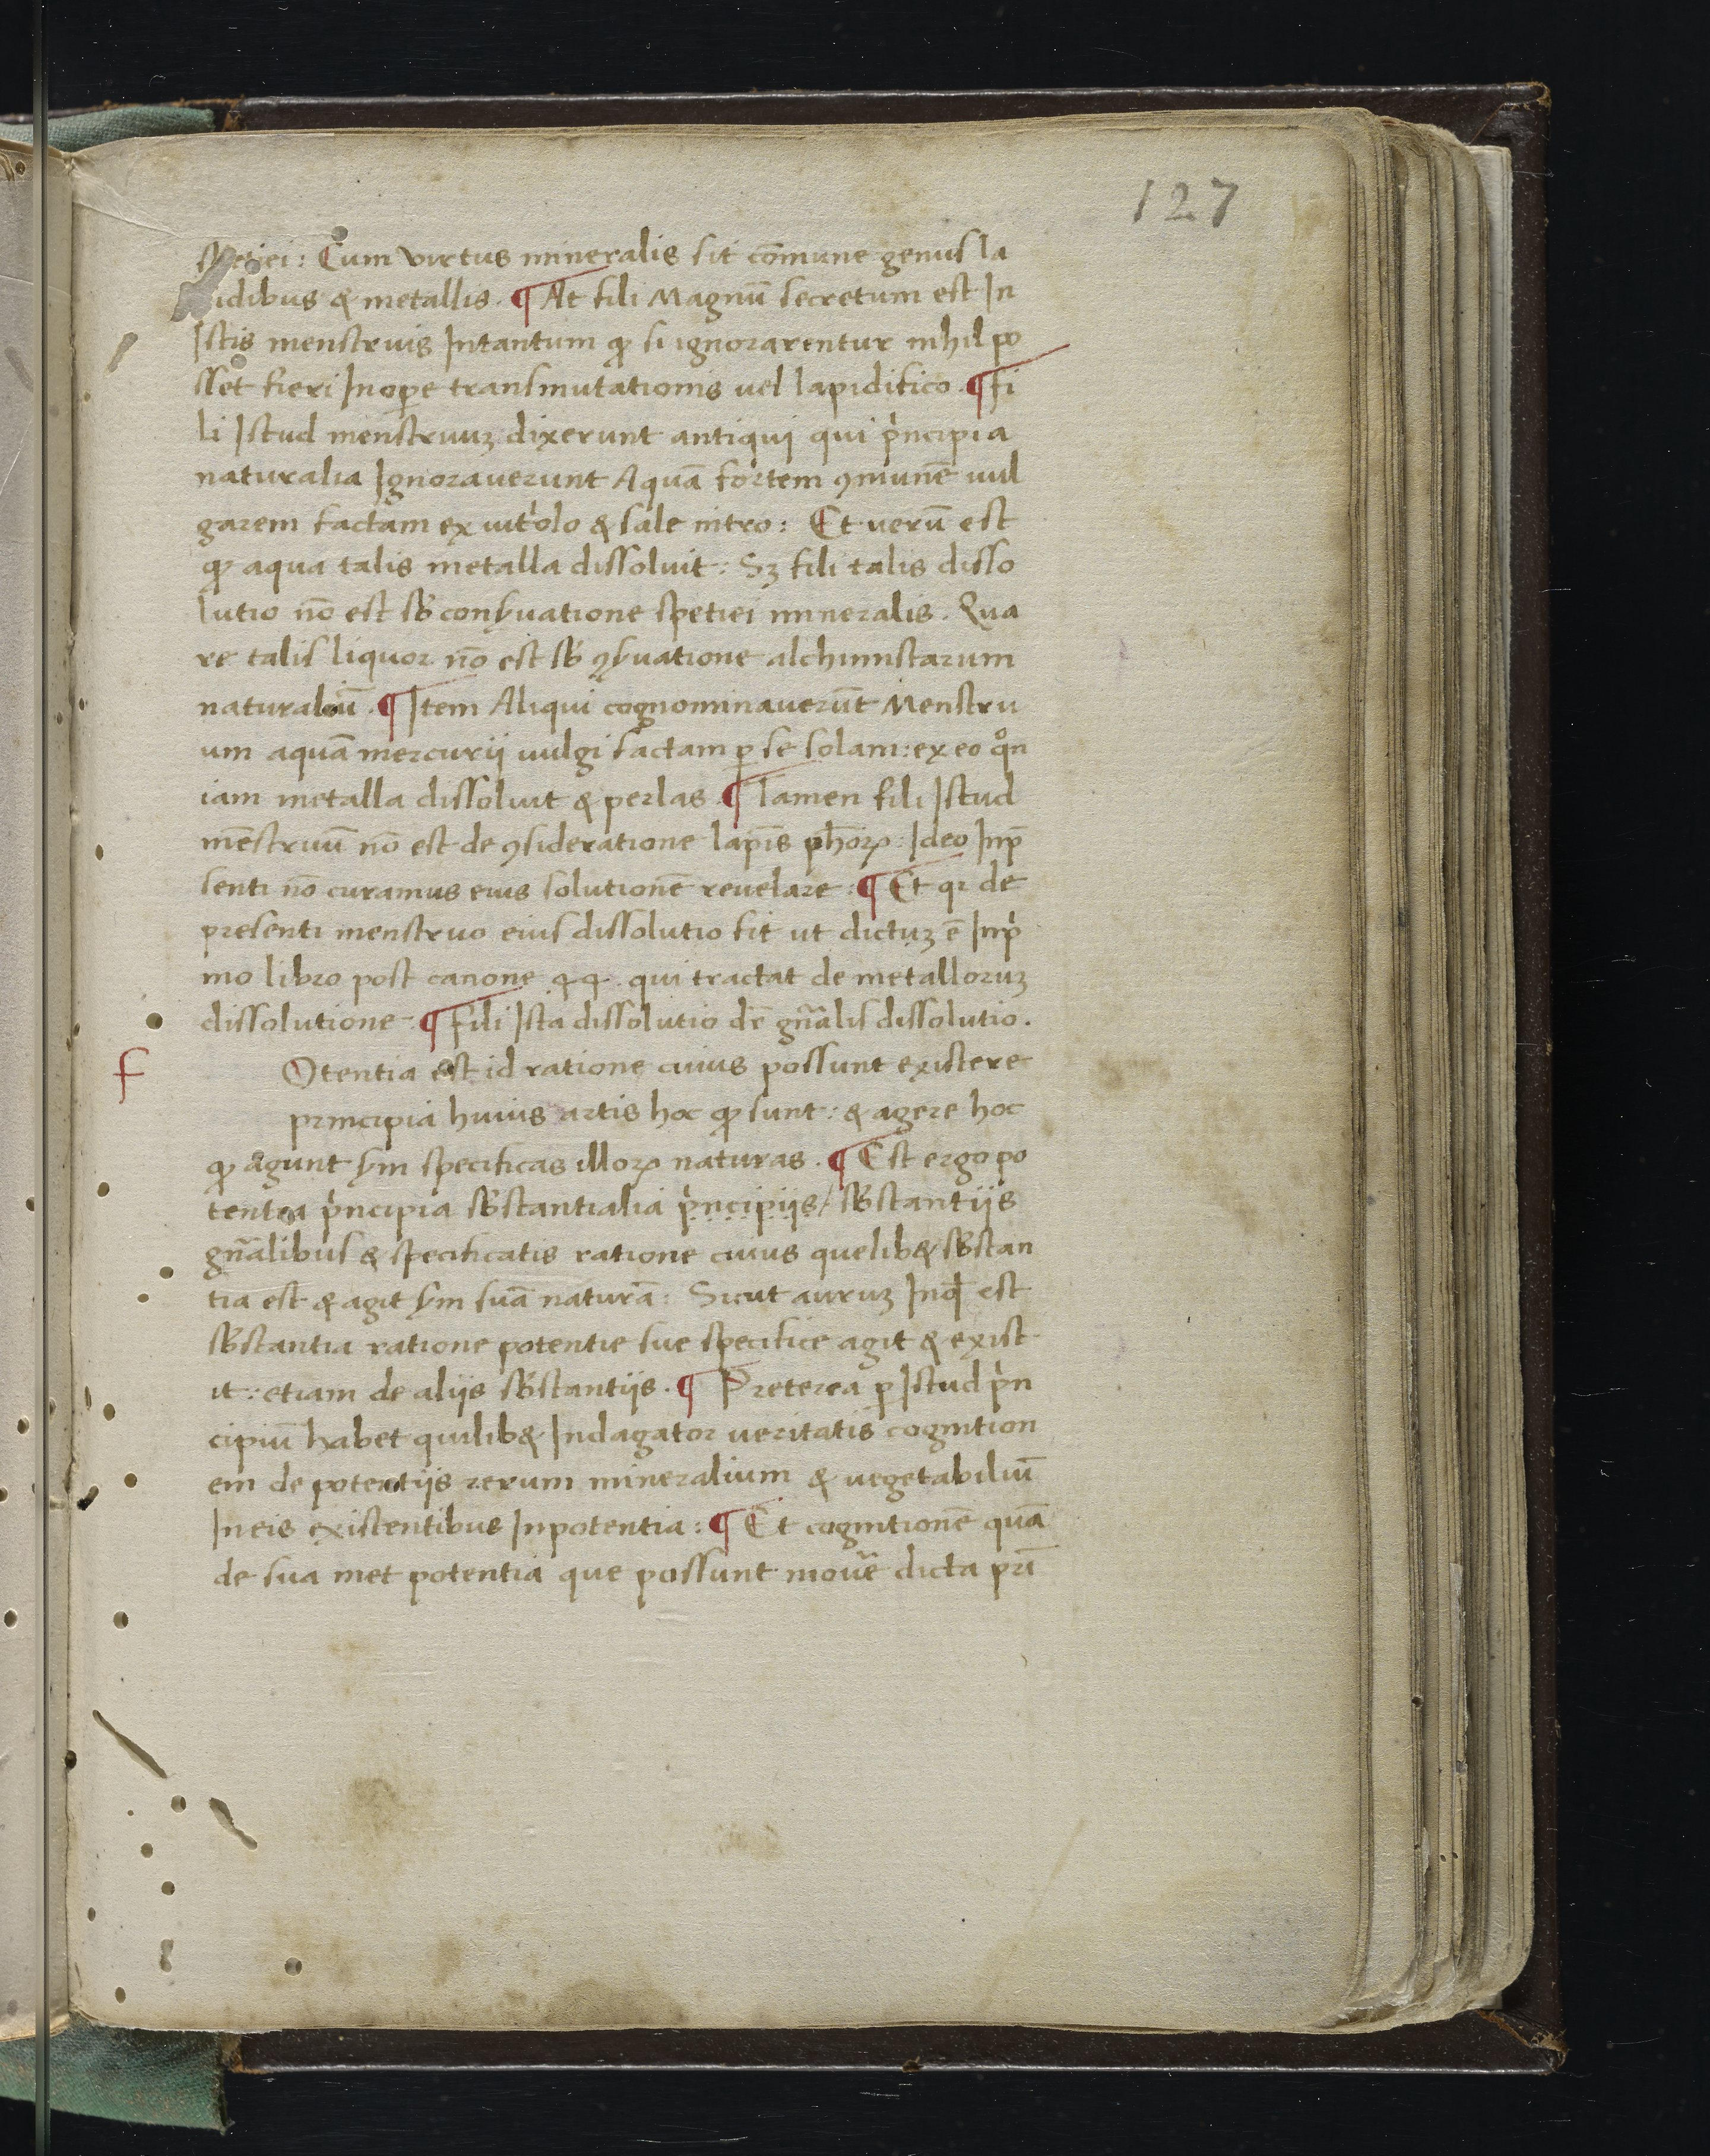 127
spetiei: Cum virtus mineralis sit cōmune genus la
pidibus & metallis. ¶ At fili Magnū secretum est In
Istis menstruis Intantum ꝙ si ignorarentur nihil po
sset fieri In oꝑe transmutationis vel lapidifico. ¶ Fi
li Istud menstruuꝫ dixerunt antiqui qui pͥncipia
naturalia Ignorauerunt Aquā fortem ꝯmunē uul
garem factam ex uitͥolo & sale nitro: Et uerū est
ꝙ aqua talis metalla dissoluit: Sꝫ fili talis disso
lutio nō est sb̄ conẜuatione spetiei mineralis. Qua
re talis liquor nō est sb̄ ꝯẜuatione alchimistarum
naturaliū. ¶ Item Aliqui cognominauerūt Menstru
um aquā mercurii uulgi factam ꝑ se solam: ex eo qͦn
iam metalla dissoluit & perlas. ¶ Tamen fili Istud
mēstruū nō est de ꝯsideratione lapīs ph̄oꝝ: Ideo Inp̄
senti nō curamus eius solutionē reuelare: ¶ Et qꝛ de
presenti menstruo eius dissolutio fit ut dictuꝫ ē Inpͥ
mo libro post canone 44. qui tractat de metalloruꝫ
dissolutione. ¶ Fili Ista dissolutio dr̄ gn̄alis dissolutio.
f
Otentia est id ratione cuius possunt existere
principia huius artis hoc ꝙ sunt: & agere hoc
ꝙ agunt ẜm specificas illoꝝ naturas. ¶ Est ergo po
tentia pͥncipia sb̄stantialia pͥncipiis/ sb̄stantiis
gn̄alibus & specificatis ratione cuius quelib& sb̄stan
tia est & agit ẜm suā naturā: Sicut auruꝫ Inqͣ est
sb̄stantia ratione potentie sue specifice agit & exist
it: etiam de aliis sb̄stantiis. ¶ Preterea ꝑ Istud pͥn
cipiū habet quilib& Indagator ueritatis cognition
em de potentiis rerum mineralium & uegetabiliū
In eis existentibus Inpotentia: ¶ Et cognitionē quā
de sua met potentia que possunt mouē dicta pri̅